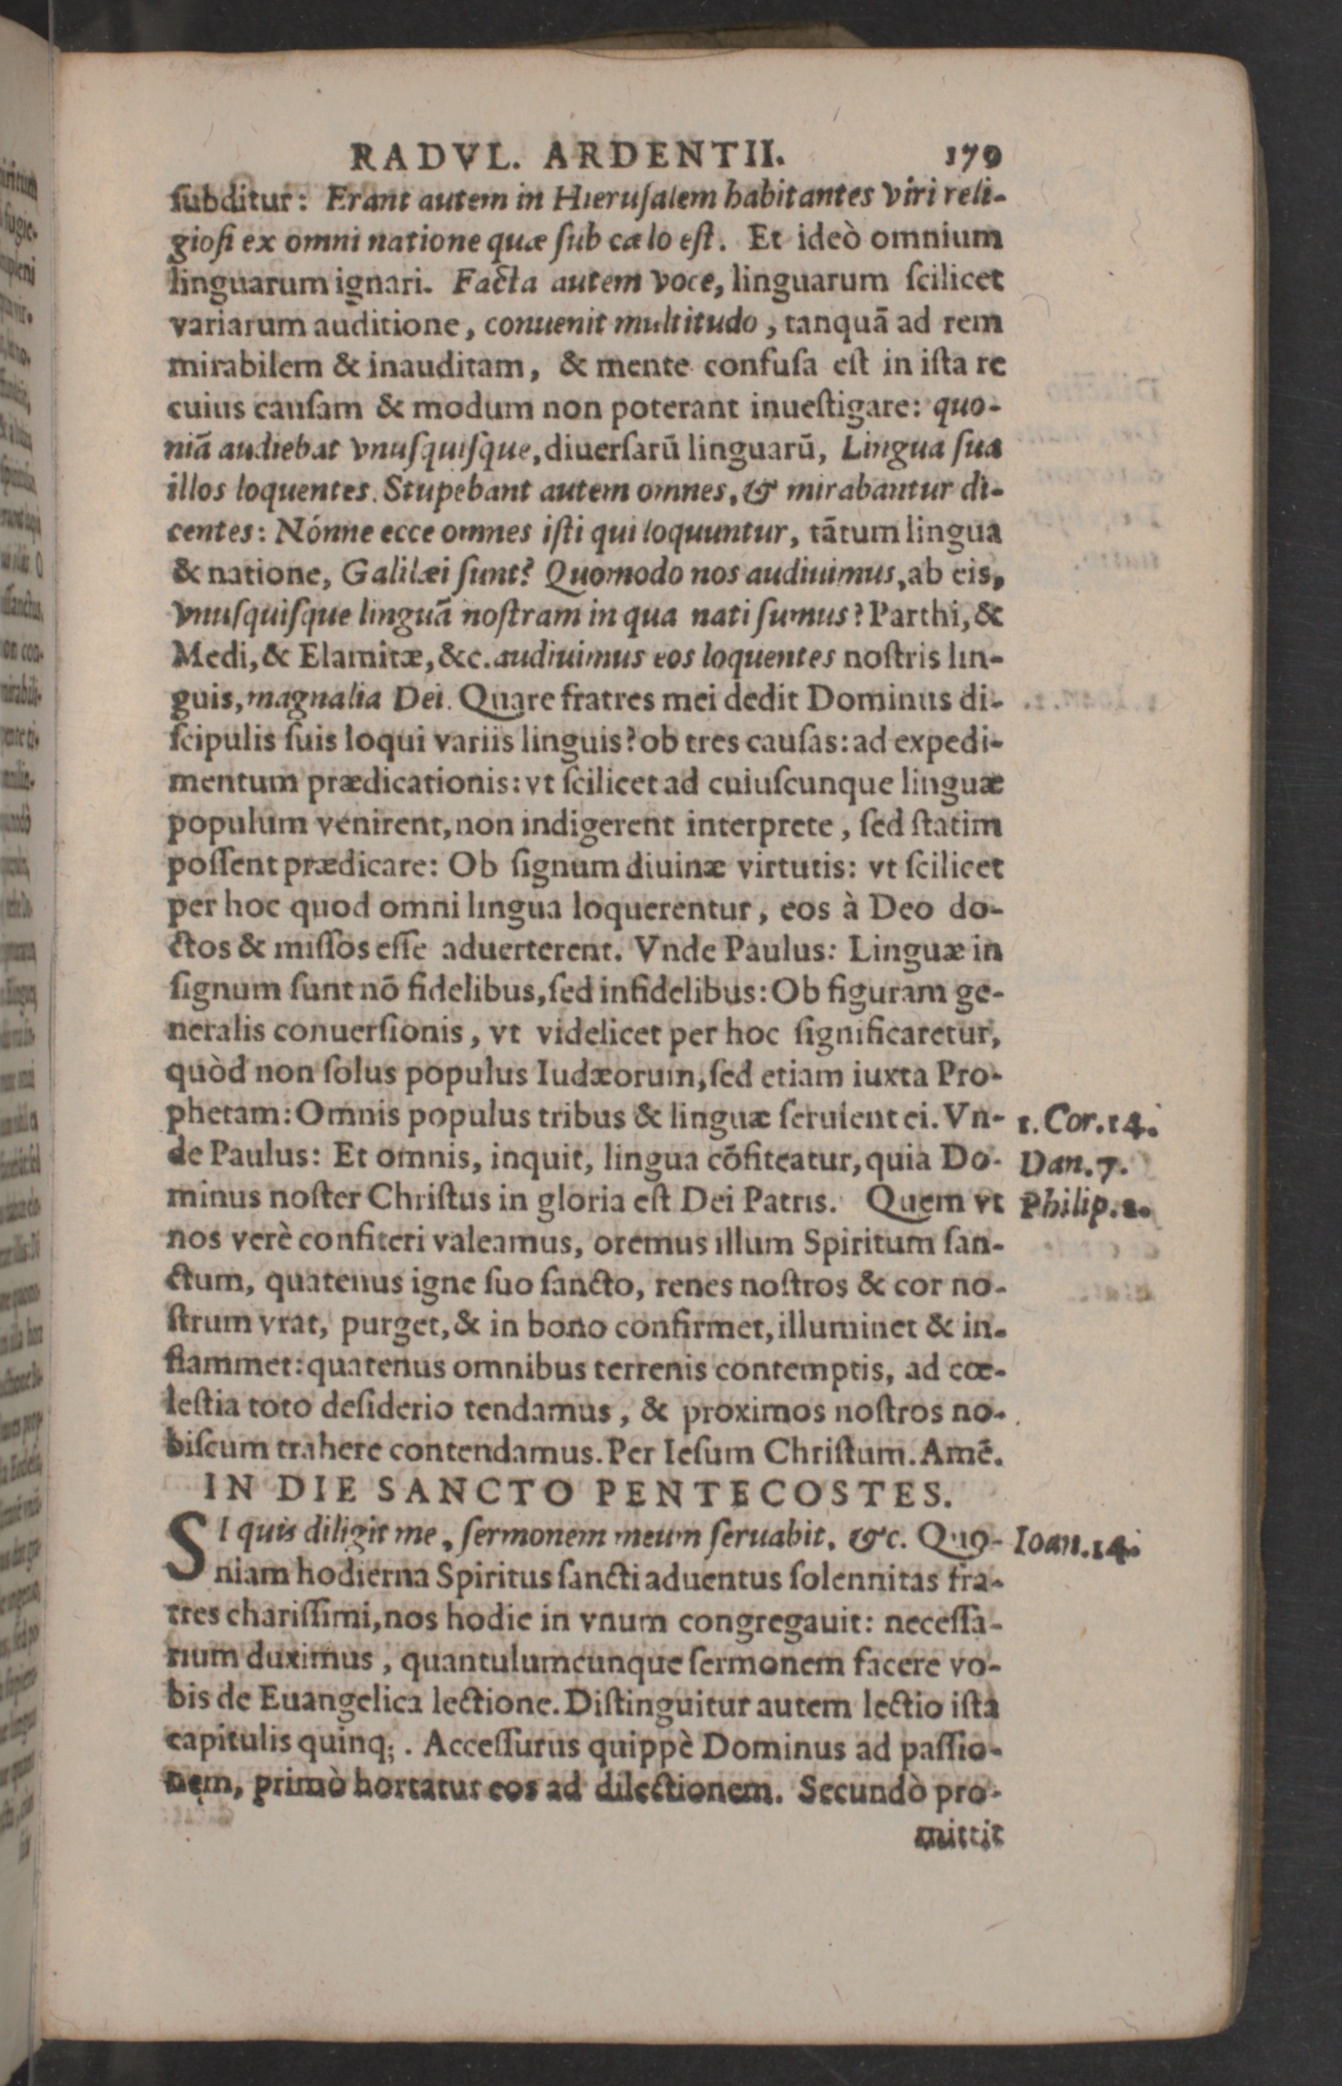 RADVL. ARDENTII. 179
ſubditur: Erant autem in Hieruſalem habitantes viri reli-
gioſi ex omni natione quæ ſub cælo eſt. Et ideò omnium
linguarum ignari. Facta autem voce, linguarum ſcilicet
variarum auditione, conuenit multitudo, tanquã ad rem
mirabilem & inauditam, & mente confuſa eſt in iſta re
cuius cauſam & modum non poterant inueſtigare: quo-
niã audiebat vnuſquiſque, diuerſarũ linguarũ, Lingua ſua
illos loquentes. Stupebant autem omnes, & mirabantur di-
centes: Nónne ecce omnes iſti qui loquuntur, tãtum lingua
& natione, Galilæi ſunt? Quomodo nos audiuimus, ab eis,
vnuſquiſque linguã noſtram in qua nati ſumus? Parthi, &
Medi, & Elamitæ, &c. audiuimus eos loquentes noſtris lin-
guis, magnalia Dei. Quare fratres mei dedit Dominus di-
ſcipulis ſuis loqui variis linguis? ob tres cauſas: ad expedi-
mentum prædicationis: vt ſcilicet ad cuiuſcunque linguæ
populum venirent, non indigerent interprete, ſed ſtatim
poſſent prædicare: Ob ſignum diuinæ virtutis: vt ſcilicet
per hoc quod omni lingua loquerentur, eos à Deo do-
ctos & miſſos eſſe aduerterent. Vnde Paulus: Linguæ in
ſignum ſunt nõ fidelibus, ſed infidelibus: Ob figuram ge-
neralis conuerſionis, vt videlicet per hoc ſignificaretur,
quòd non ſolus populus Iudæorum, ſed etiam iuxta Pro-
phetam: Omnis populus tribus & linguæ ſeruient ei. Vn- 1. Cor. 14.
de Paulus: Et omnis, inquit, lingua cõfiteatur, quia Do- Dan. 7.
minus noſter Chriſtus in gloria eſt Dei Patris. Quem vt Philip. 2.
nos verè confiteri valeamus, oremus illum Spiritum ſan-
ctum, quatenus igne ſuo ſancto, renes noſtros & cor no-
ſtrum vrat, purget, & in bono confirmet, illuminet & in-
flammet: quatenus omnibus terrenis contemptis, ad cœ-
leſtia toto deſiderio tendamus, & proximos noſtros no-
biſcum trahere contendamus. Per Ieſum Chriſtum. Amẽ.
IN DIE SANCTO PENTECOSTES.
SI quis diligit me, ſermonem meum ſeruabit. &c. Quo- Ioan. 14.
niam hodierna Spiritus ſancti aduentus ſolennitas fra-
tres chariſſimi, nos hodie in vnum congregauit: neceſſa-
rium duximus, quantulumcunque ſermonem facere vo-
bis de Euangelica lectione. Diſtinguitur autem lectio iſta
capitulis quinq;. Acceſſurus quippè Dominus ad paſſio-
nem, primò hortatur eos ad dilectionem. Secundò pro-
mittit